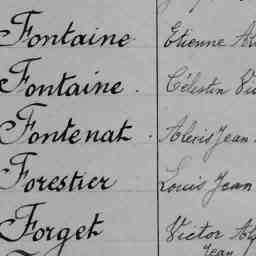 Fontaine Etienne
Fontaine Célestin
Fontenat Alexis Jean
Forestier Louis Jean
Forget Victor
Jean